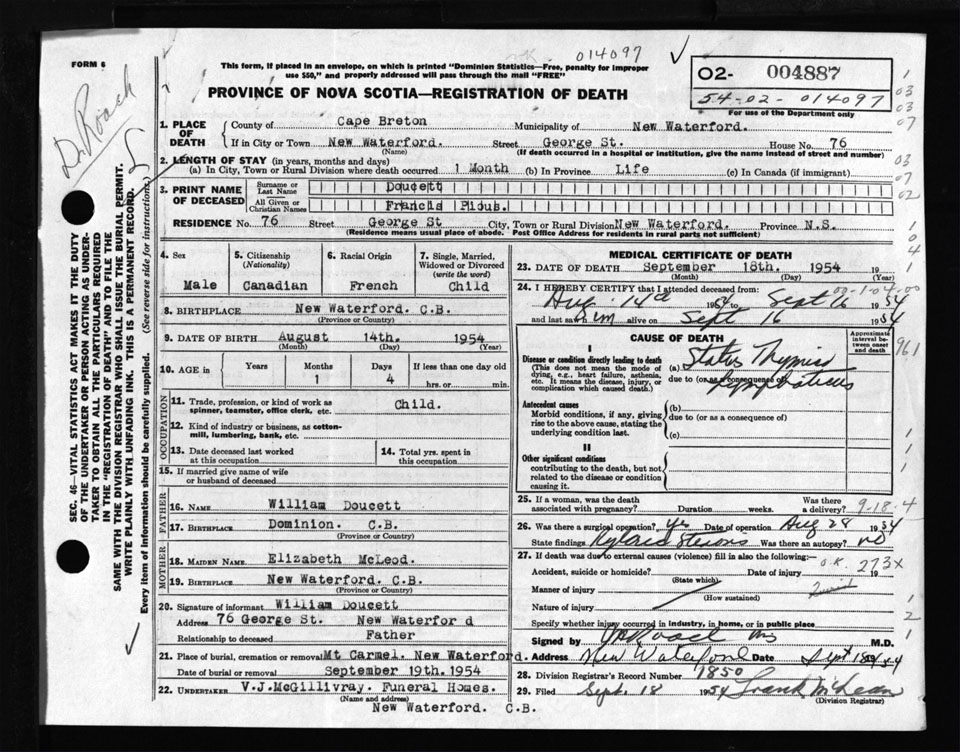 014097
FORM 6
Dr Roach
This form, if placed in an envelope, on which is printed "Dominion Statistics—Free, penalty for improper
use $50," and properly addressed will pass through the mail "FREE"
PROVINCE OF NOVA SCOTIA—REGISTRATION OF DEATH
02- 004887
54-02-014097
For use of the Department only
1. PLACE OF DEATH
County of Cape Breton Municipality of New Waterford.
If in City or Town New Waterford. Street George St. House No. 76
(Name) (If death occurred in a hospital or institution, give the name instead of street and number)
2. LENGTH OF STAY (in years, months and days)
(a) In City, Town or Rural Division where death occurred 1 Month (b) In Province Life (c) In Canada (if immigrant)
3. PRINT NAME OF DECEASED
Surname or Last Name Doucett
All Given or Christian Names Francis Pious.
RESIDENCE No. 76 Street George St City, Town or Rural Division New Waterford. Province N.S.
(Residence means usual place of abode. Post Office Address for residents in rural parts not sufficient)
4. Sex
Male
5. Citizenship
(Nationality)
Canadian
6. Racial Origin
French
7. Single, Married,
Widowed or Divorced
(write the word)
Child
8. BIRTHPLACE New Waterford. C.B.
(Province or Country)
9. DATE OF BIRTH August 14th. 1954
(Month) (Day) (Year)
10. AGE in Years Months Days If less than one day old
1 4 hrs. or min.
OCCUPATION
11. Trade, profession, or kind of work as
spinner, teamster, office clerk, etc. Child.
12. Kind of industry or business, as cotton-
mill, lumbering, bank, etc.
13. Date deceased last worked
at this occupation
14. Total yrs. spent in
this occupation
15. If married give name of wife
or husband of deceased
FATHER
16. Name William Doucett
17. Birthplace Dominion. C.B.
(Province or Country)
MOTHER
18. Maiden Name Elizabeth McLeod.
19. Birthplace New Waterford. C.B.
(Province or Country)
20. Signature of informant William Doucett
Address 76 George St. New Waterfor d
Relationship to deceased Father
21. Place of burial, cremation or removal Mt Carmel. New Waterford.
Date of burial or removal September 19th. 1954
22. Undertaker V.J.McGillivray. Funeral Homes.
(Name and address)
New Waterford. C.B.
MEDICAL CERTIFICATE OF DEATH
23. DATE OF DEATH September 18th. 1954 19
(Month) (Day) (Year)
24. I HEREBY CERTIFY that I attended deceased from: 00-1-04-00
Aug. 14th 1954 to Sept 16 1954
and last saw him alive on Sept 16 1954
CAUSE OF DEATH
Approximate
interval be-
tween onset
and death
961
I
Disease or condition directly leading to death
(This does not mean the mode of
dying, e.g., heart failure, asthenia,
etc. It means the disease, injury, or
complication which caused death.)
(a) Status Thymico
due to (or as a consequence of) Lymphaticus
Antecedent causes
Morbid conditions, if any, giving
rise to the above cause, stating the
underlying condition last.
(b)
due to (or as a consequence of)
(c)
II
Other significant conditions
contributing to the death, but not
related to the disease or condition
causing it.
25. If a woman, was the death
associated with pregnancy? Duration weeks. Was there
a delivery?
9-18-4
26. Was there a surgical operation? yes Date of operation Aug 28 1954
State findings Pyloric Stenosis Was there an autopsy? no
27. If death was due to external causes (violence) fill in also the following:—
O.K. 273X
Accident, suicide or homicide? Date of injury 19
(State which)
Manner of injury
(How sustained)
Nature of injury
Specify whether injury occurred in industry, in home, or in public place
Signed by J M Roach M.D.
Address New Waterford Date Sept 18 1954
28. Division Registrar's Record Number 1850
29. Filed Sept. 18 1954 Frank McLean
(Division Registrar)
SEC. 46—VITAL STATISTICS ACT MAKES IT THE DUTY
OF THE UNDERTAKER OR PERSON ACTING AS UNDER-
TAKER TO OBTAIN ALL THE PARTICULARS REQUIRED
IN THE "REGISTRATION OF DEATH" AND TO FILE THE
SAME WITH THE DIVISION REGISTRAR WHO SHALL ISSUE THE BURIAL PERMIT.
WRITE PLAINLY WITH UNFADING INK. THIS IS A PERMANENT RECORD.
Every item of information should be carefully supplied. (See reverse side for instructions.)
1
03
03
07
03
07
02
1
0
4
1
1
1
1
2
1